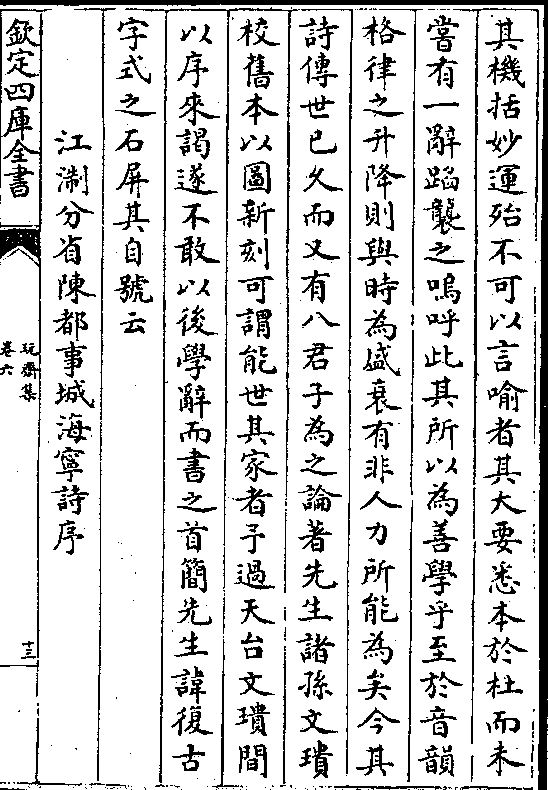 其機括妙運殆不可以言喻者其大要悉本於杜而未
嘗有一辭蹈襲之嗚呼此其所以為善學乎至於音韻
格律之升降則與時為盛衰有非人力所能為矣今其
詩傳世已久而又有八君子為之論著先生諸孫文璝
校舊本以圖新刻可謂能世其家者予過天台文璝間
以序來謁遂不敢以後學辭而書之首簡先生諱復古
字式之石屏其自號云
江淛分省陳都事城海寧詩序
欽定四庫全書
玩齋集
卷六
十三